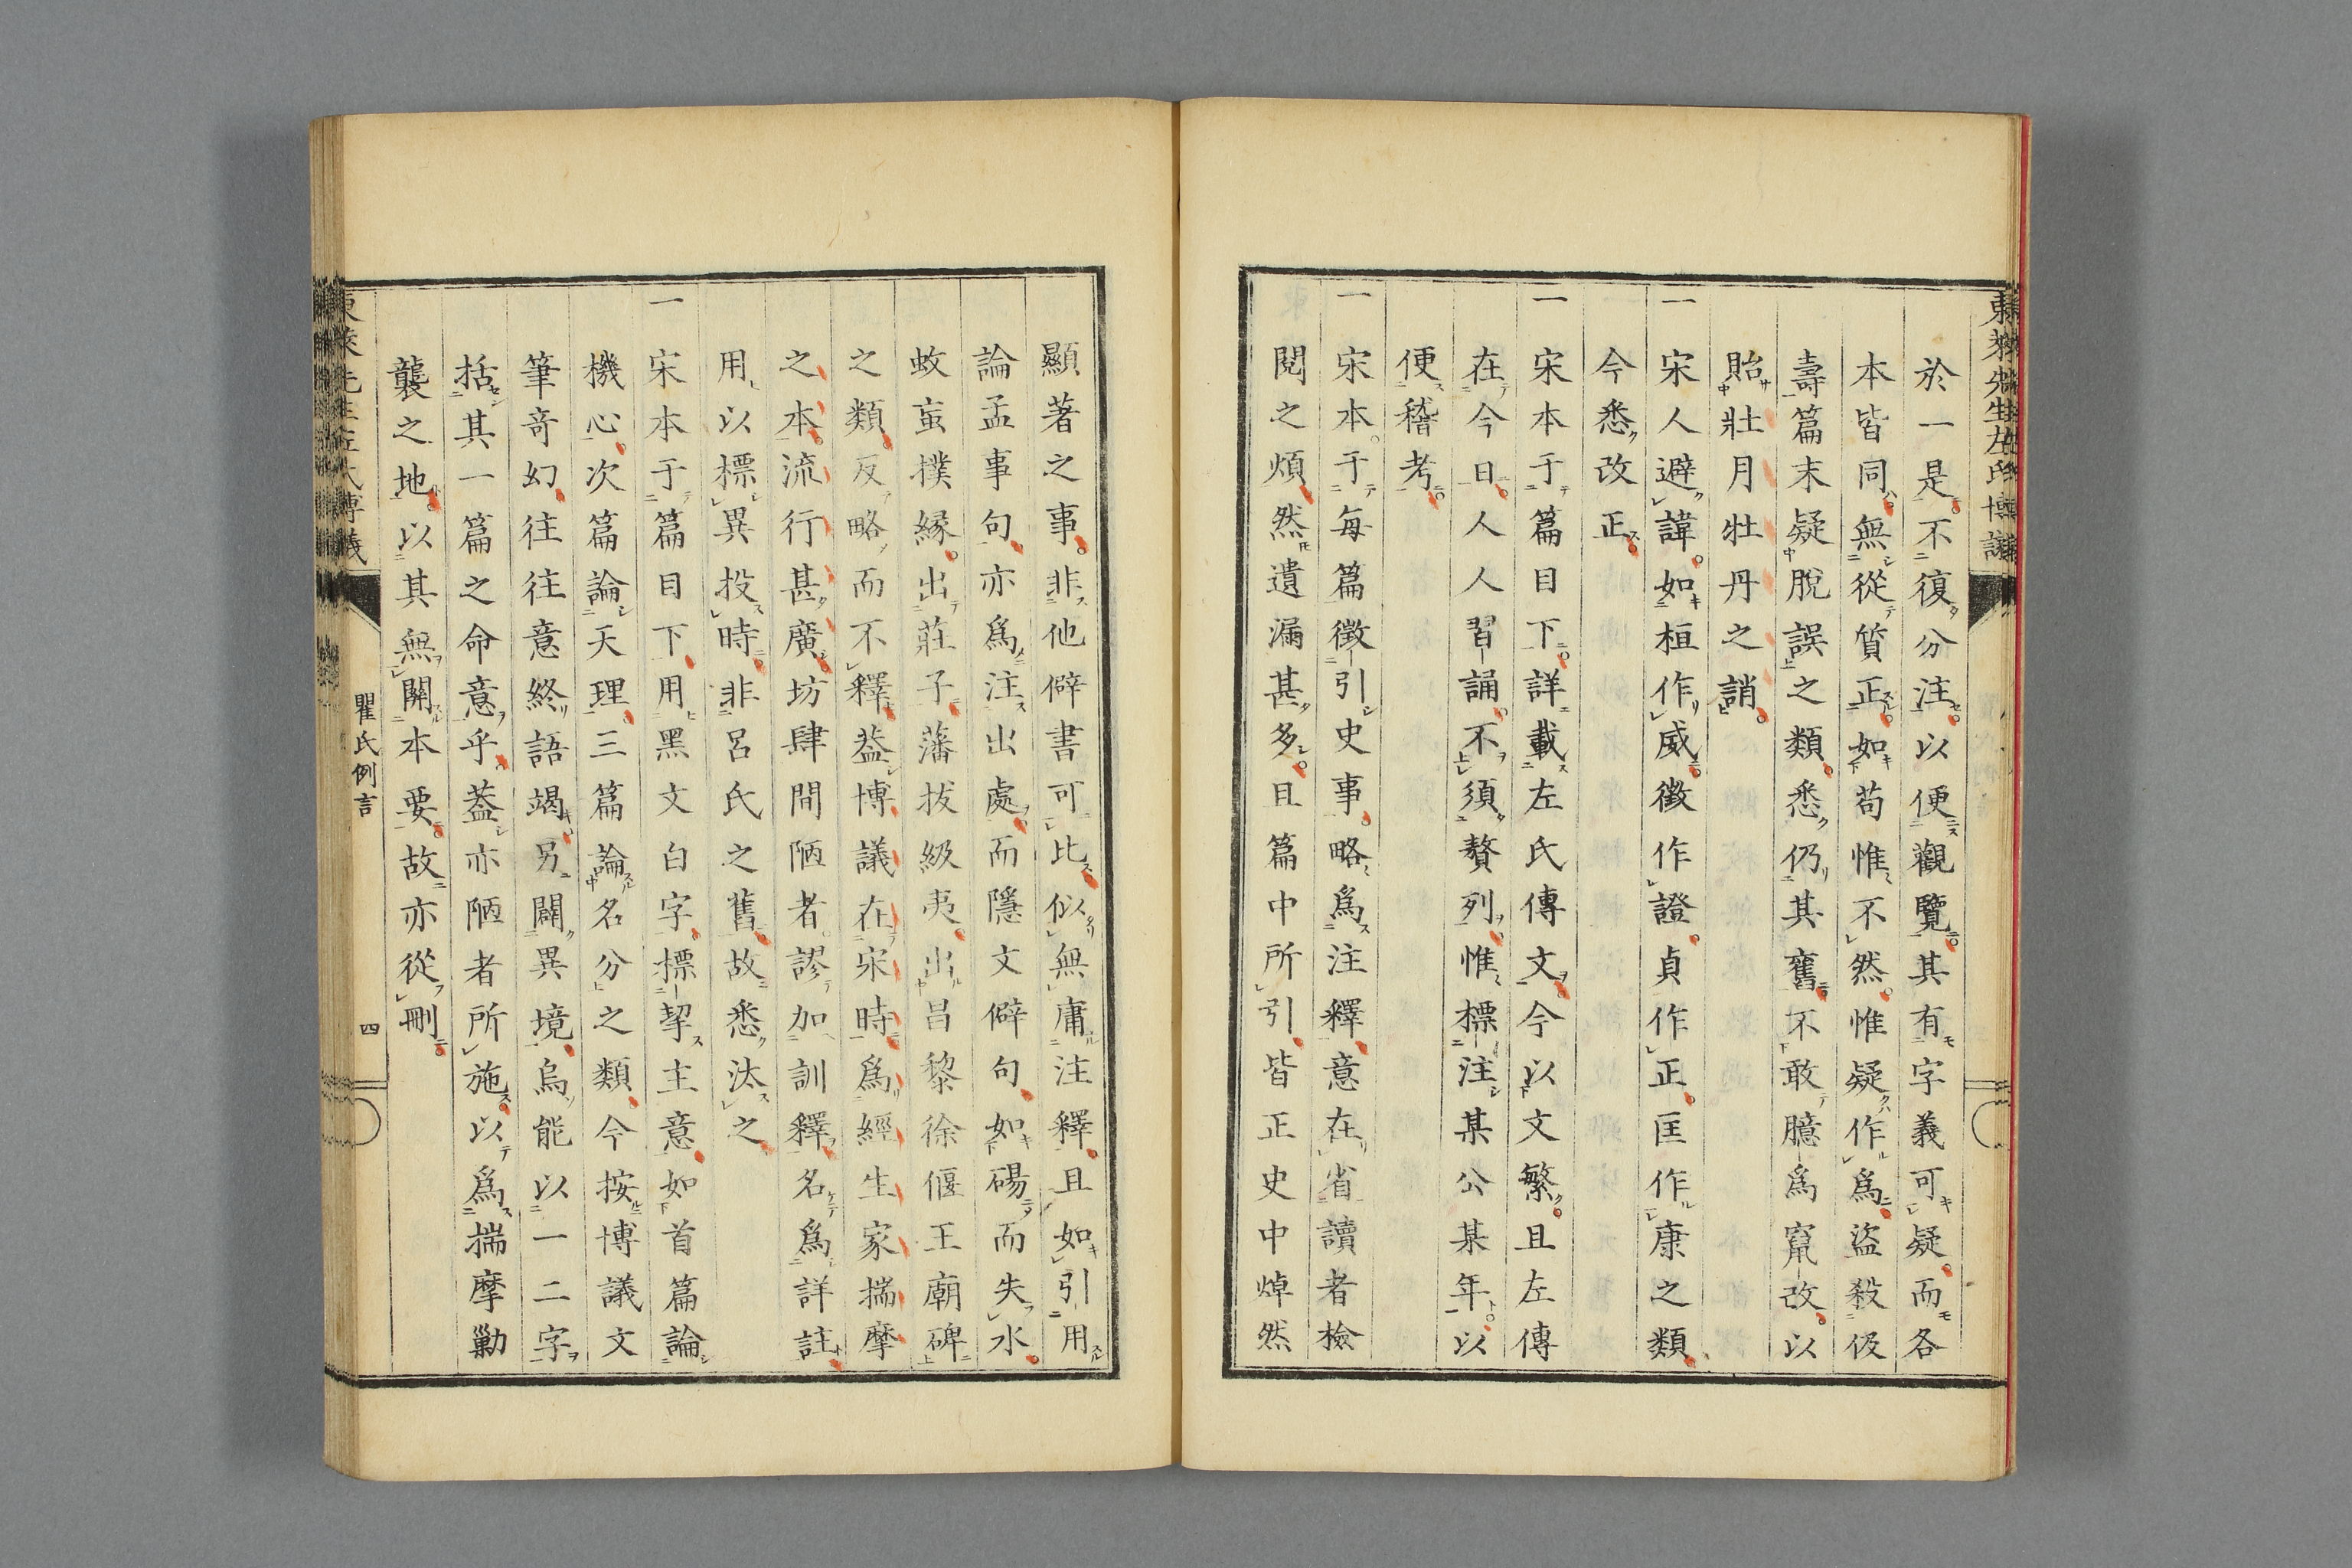 東萊先生左氏博議
於一是不復分注以便觀覽其有字義可疑而各
本皆同無從質正如苟惟不然惟疑作爲盜殺伋
壽篇末疑脫誤之類悉仍其舊不敢臆爲竄改以
貽壯月牡丹之誚
一宋人避諱如桓作威徵作證貞作正匡作康之類
今悉改正
一宋本于篇目下詳載左氏傳文今以文繁且左傳
在今日人人習誦不須贅列惟標注某公某年以
便稽考
一宋本于每篇徵引史事略爲注釋意在省讀者檢
閱之煩然遺漏甚多且篇中所引皆正史中焯然
顯著之事非他僻書可比似無庸注釋且如引用
論孟事句亦爲注出處而隱文僻句如碭而失水
蚊䖟撲緣出莊子藩拔級夷出昌黎徐偃王廟碑
之類反略而不釋葢博議在宋時爲經生家揣摩
之本流行甚廣坊肆間陋者謬加訓釋名爲詳註
用以標異投時非呂氏之舊故悉汰之
一宋本于篇目下用黑文白字標挈主意如首篇論
機心次篇論天理三篇論名分之類今按博議文
筆奇幻往往意終語竭另闢異境烏能以一二字
括其一篇之命意乎葢亦陋者所施以爲揣摩勦
襲之地以其無關本要故亦從刪
東萊先生左氏博議
瞿氏例言
四